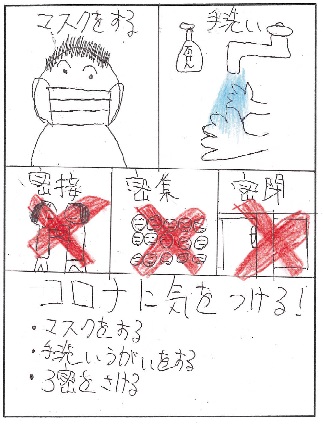 マスクをする
手洗い
石けん
密接
密集
密閉
コロナに気をつける!
・マスクをする
・手洗いうがいをする
・3密をさける